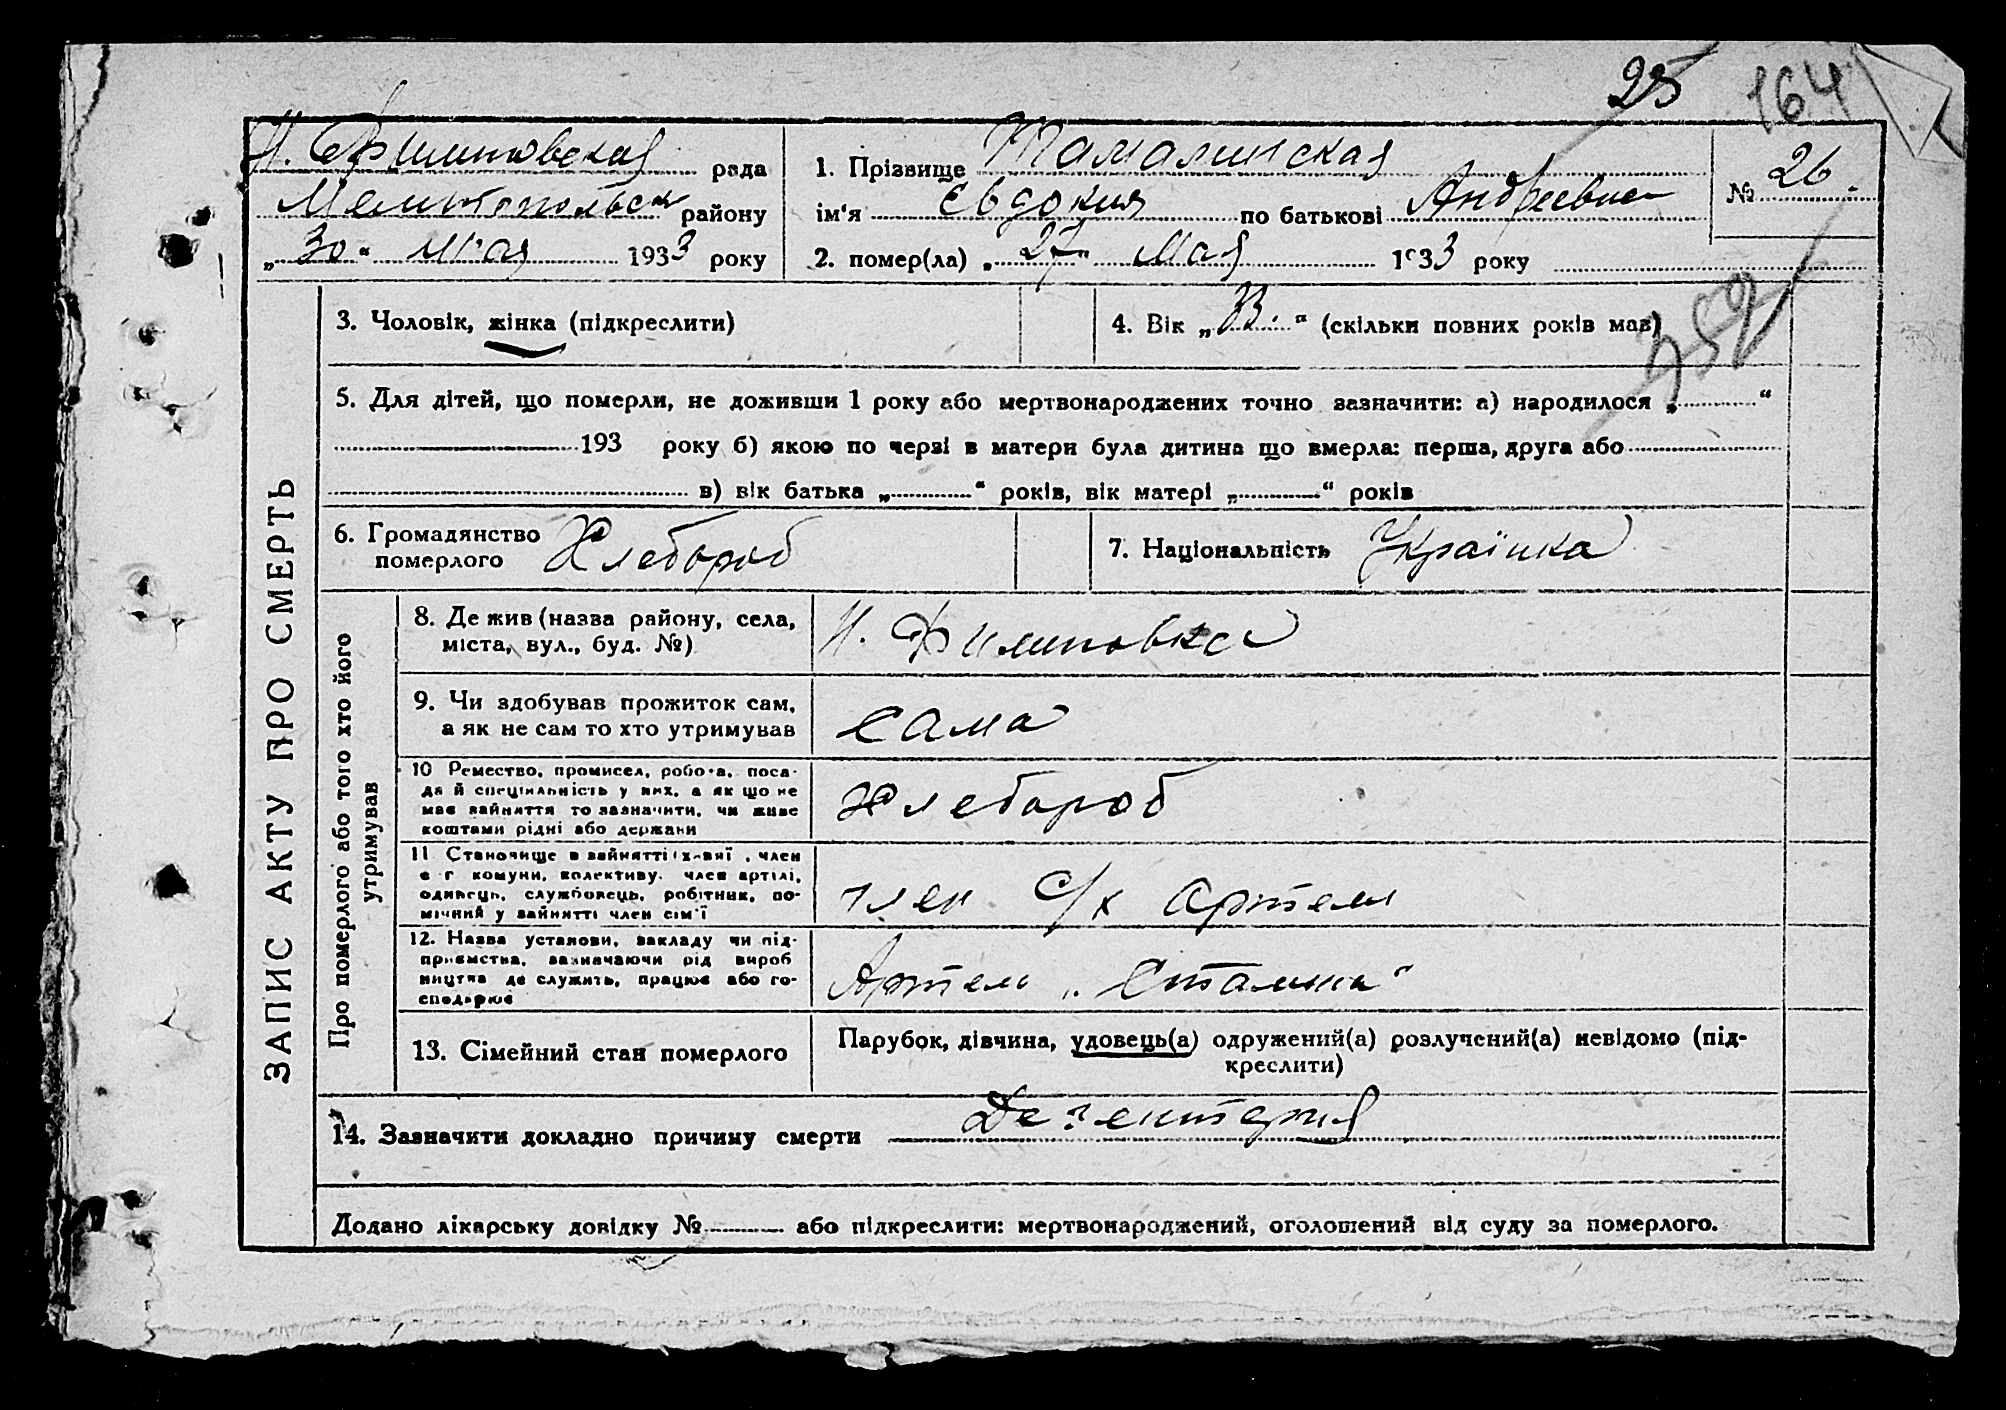 25 164
Н. Филиповская рада
Мелитопольск району
„30" мая 1933 року
1. Прізвище Тамалинская
ім'я Євдокия по батькові Андреевна
№ 26.
2. помер(ла) „27" Мая 1933 року
3. Чоловік, жінка (підкреслити)
4. Вік „33." (скільки повних років мав)
352
5. Для дітей, що померли, не доживши 1 року або мертвонароджених точно зазначити: а) народилося „ "
193 року б) якою по черзі в матери була дитина що вмерла: перша, друга або
в) вік батька „ " років, вік матері „ " років
6. Громадянство
померлого Хлебороб
7. Національність Українка
ЗАПИС АКТУ ПРО СМЕРТЬ
Про померлого або того хто його
утримував
8. Де жив (назва району, села,
міста, вул., буд. №)
Н. Филиповка
9. Чи здобував прожиток сам,
а як не сам то хто утримував
сама
10 Ремество, промисел, робота, поса-
да й спеціяльність у них, а як що не
має зайняття то зазначити, чи живе
коштами рідні або держави
Хлебороб
11 Становище в зайнятті член
комуни, колективу, член артілі,
одинець, службовець, робітник, по-
мічний у зайнятті член сім'ї
член С/х артели
12. Назва установи, закладу чи під-
приємства, зазначаючи рід вироб
ництва де служить, працює або го-
сподарює
Артели „Сталина"
13. Сімейний стан померлого
Парубок, дівчина, удовець(а) одружений(а) розлучений(а) невідомо (під-
креслити)
14. Зазначити докладно причину смерти Дезентерия
Додано лікарську довідку № або підкреслити: мертвонароджений, оголошений від суду за померлого.